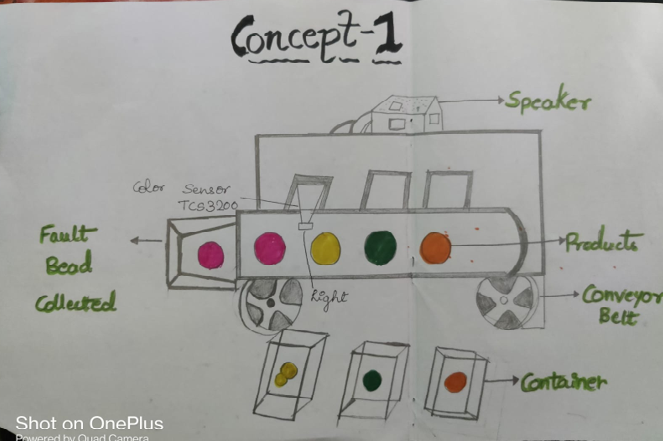 Concept-1
Speaker
Color Sensor
TCS3200
Fault
Bead
Collected
Products
Light
Conveyor
Belt
Container
Shot on OnePlus
Powered by Quad Camera